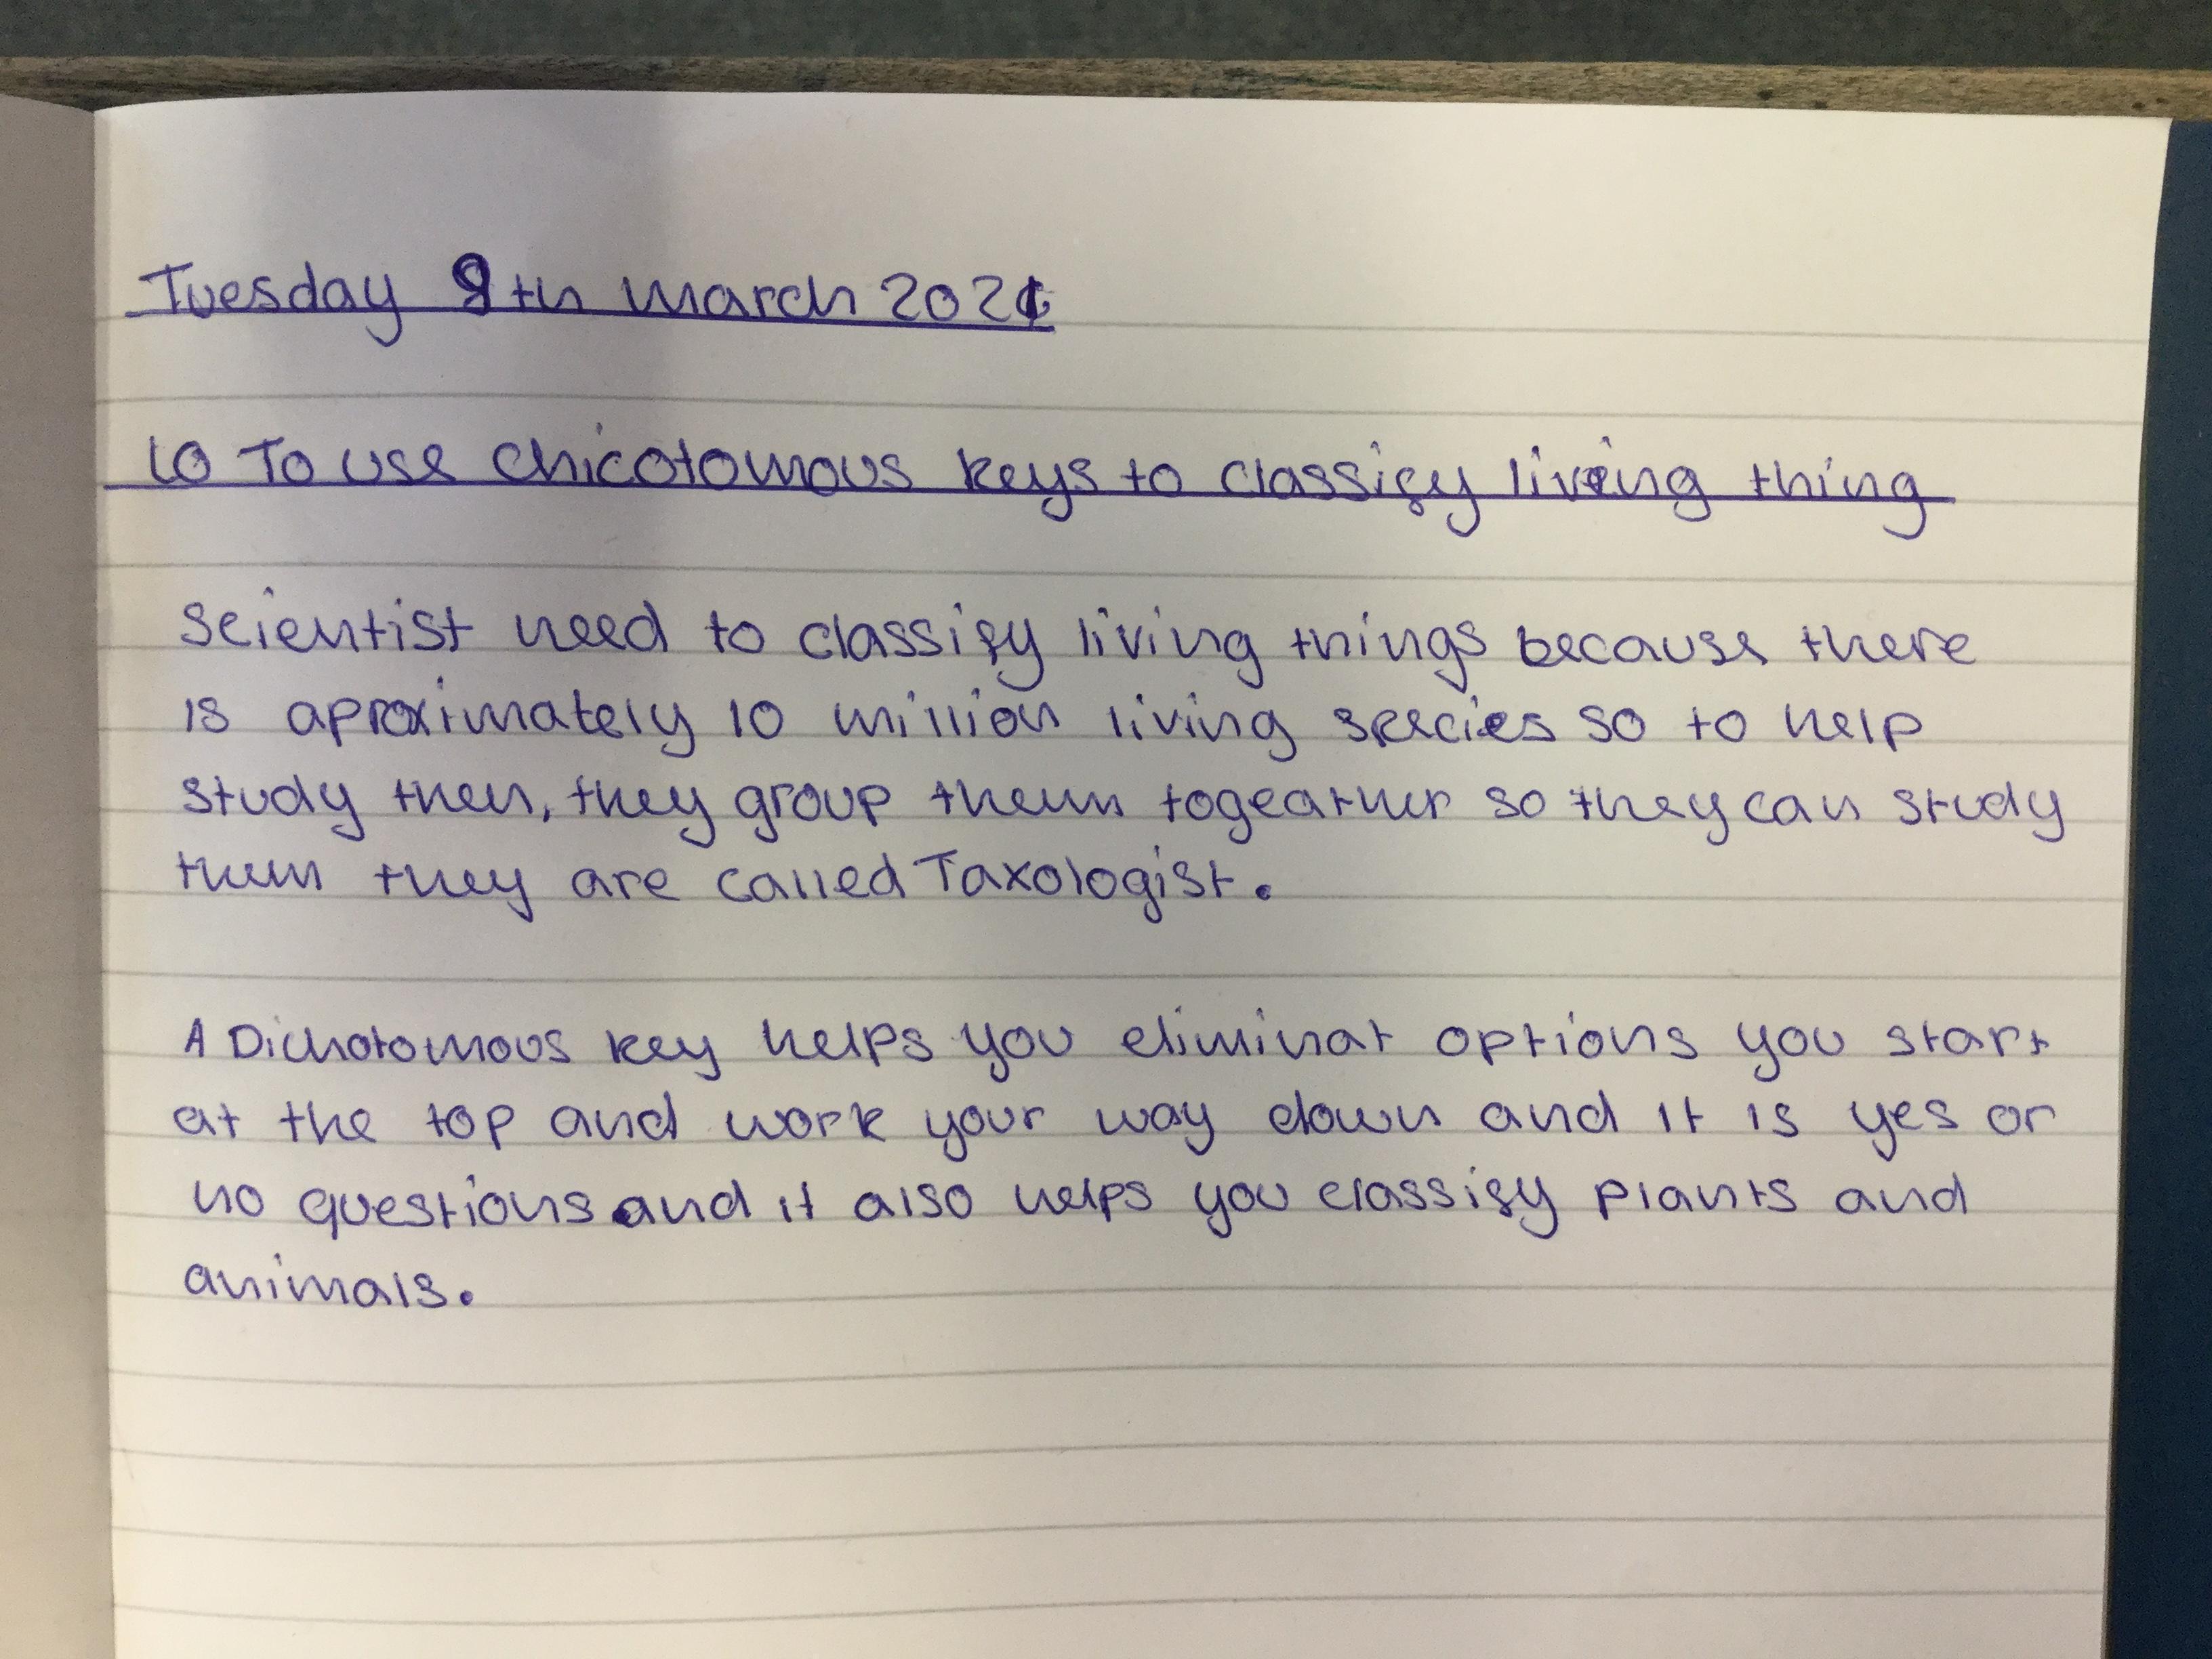 Tuesday 9th March 2021
LO To use Chicotomous keys to classify living thing
Scientist need to classify living things because there
is aproximately 10 million living species so to help
study then, they group them togearther so they can study
them they are called Taxologist.
A Dichotomous key helps you eliminat options you start
at the top and work your way down and it is yes or
no questions and it also helps you classify plants and
animals.